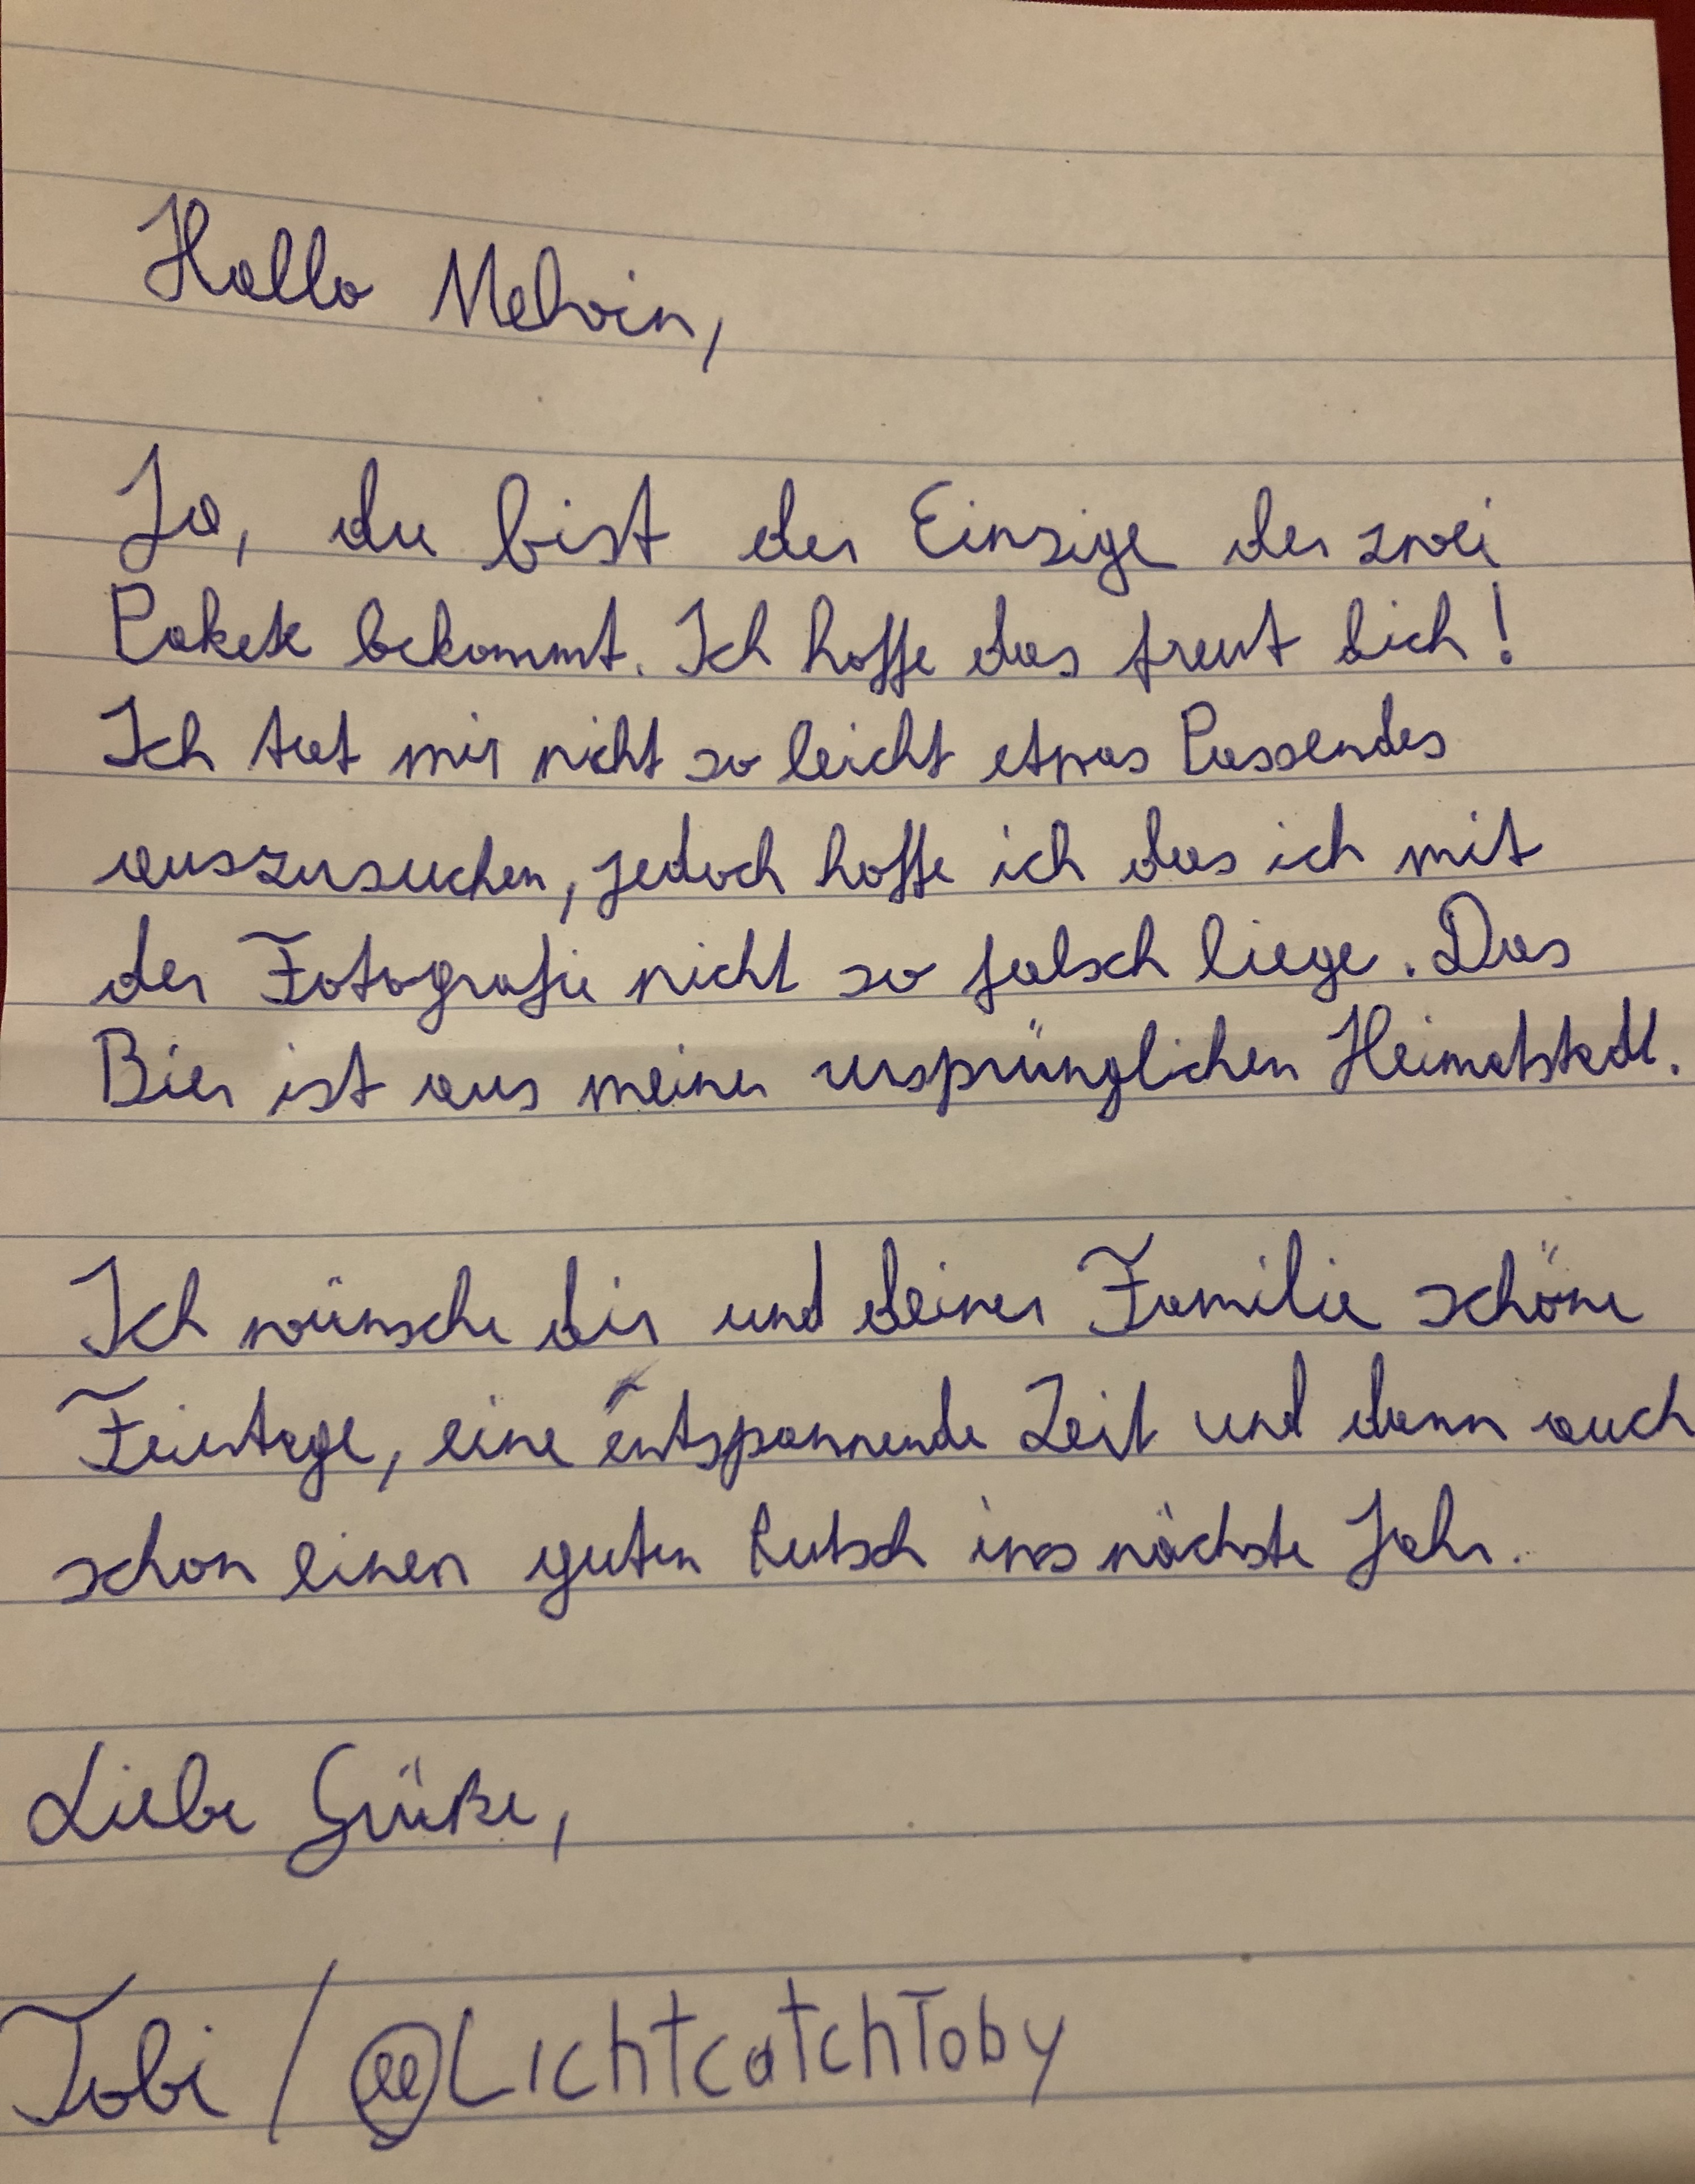 Hallo Melvin,
Ja, du bist der Einzige der zwei
Pakete bekommt. Ich hoffe das freut dich!
Ich tat mir nicht so leicht etwas Passendes
auszusuchen, jedoch hoffe ich das ich mit
der Fotografie nicht so falsch liege. Das
Bier ist aus meiner ursprünglichen Heimatstadt.
Ich wünsche dir und deiner Familie schöne
Feiertage, eine entspannende Zeit und dann auch
schon einen guten Rutsch ins nächste Jahr.
Liebe Grüße,
Tobi / @LichtcatchToby